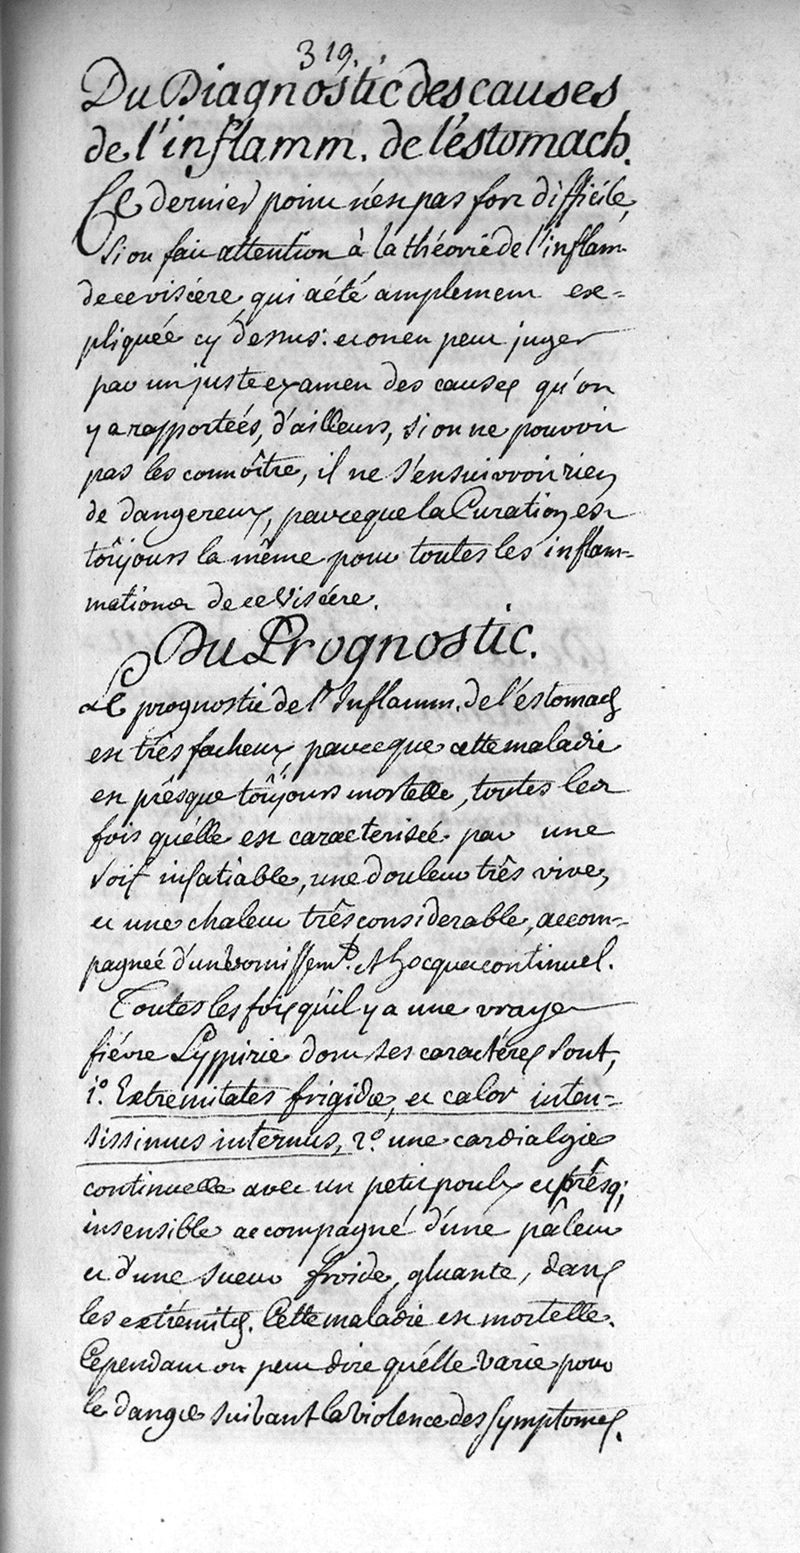 319.
Du Diagnostic des causes
de l'inflamm. de l'éstomach.
Ce dernier point n'est pas fort difficile,
si on fait attention à la théorie de l'inflam.
de ce viscere, qui a été amplement ex=
pliquée cy dessus: et on en peut juger
par un juste examen des causes qu'on
y a rapporteés, d'ailleurs, si on ne pouvoit
pas les connoître, il ne s'ensuivroit rien
de dangereux, parceque la Curation est
toûjours la même pour toutes les inflam=
mations de ce Viscére.
Du Prognostic.
Le prognostic de l'Inflamm. de l'éstomach
est très facheux, parceque cette maladie
est prêsque toûjours mortelle, toutes les
fois qu'élle est caracterisée par une
soif insatiable, une douleur três vive,
et une chaleur três considerable, accom=
pagneé d'un vomissemt. et hocquet continuel.
Toutes les fois qu'il y a une vraye
fiévre Lyppirie dont ses caractéres sont,
1.º Extremitates frigidæ, et calor inten=
sissimus internus, 2.º une cardialgie
continuelle avec un petit poulx et prêsq;
insensible accompagné d'une pâleur
et d'une sueur froide, gluante, dans
les extrémités. Cette maladie est mortelle.
Cependant on peut dire qu'élle varie pour
le danger suivant la violence des symptomes.